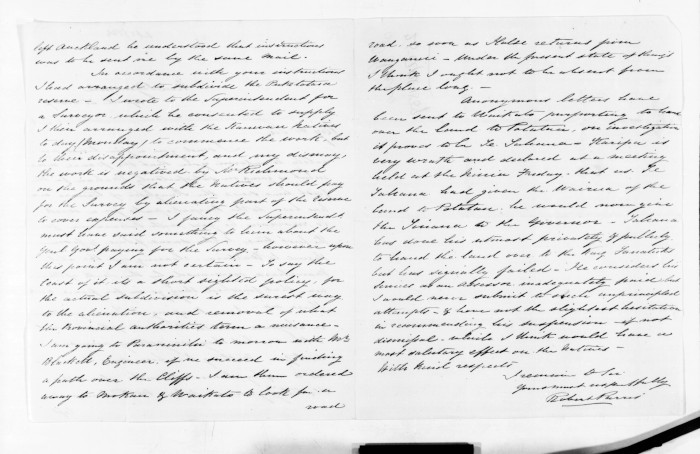 left Auckland he understood that instructions
was to be sent me by the same mail.
In accordance with your instructions
I had arranged to subdivide the
reserve – I wrote to the Superintendent for
a Surveyor, which he consented to supply
I then arranged with the Natives
to day (Monday) to commence the work, but
to their disappointment and my dismay,
the work is negatived by Mr Richmond
on the grounds that the Natives should pay
for the Survey by alienating part of the reserve
to cover expenses – I fancy the Superintendt
must have said something to him about the
Genl Govt paying for the Survey – however upon
this point I am not certain – To say the
least of it its a short sighted policy, for
the actual subdivision is the surest way
to the alienation, and removal of what
the Provincial authorities term a nuisance –
I am going to Pararinihi to morrow with Mr
Blackett, Engineer, if we succeed in finding
a path over the Cliffs – I am then ordered
away to Mokau & Waikato to look for a
road
road. so soon as Halse returns from
Wanganui – Under the present state of things
I think I ought not to be absent from
the place long –
Anonymous letters have
been sent to Waikato purporting to hand
over the land to Potatau, on investigation
it proves to be Te Tahana – is
very wrath and declared at a meeting
held at the Friday, that as Te
Tahana had given the Waitara of the
land to Potatau he would now give
the to the Governor – Tahana
has done his utmost privately & publicly
to hand the land over to the King fanatics
but has signally failed – He considers his
services as an assessor inadequately paid but
I would never submit to such unprincipled
attempts – & have not the slightest hesitation
in recommending his suspension – if not
dismissal, which I think would have a
most salutary effect on the Natives –
With kind respects
I remain to be
Yours most respectfully
Robert Parris